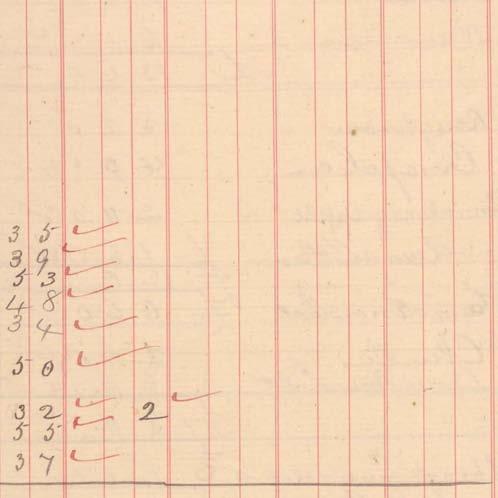 3 5
3 9
5 3
4 8
3 4
5 0
3 2 2
5 5
3 7